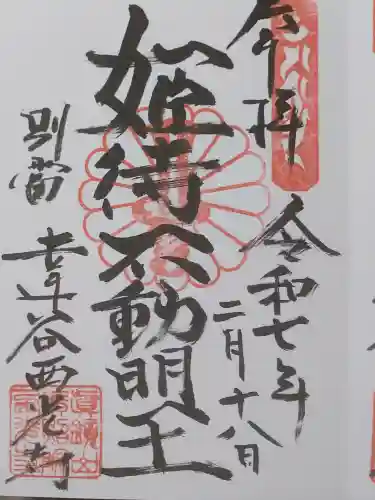 奉拝
令和七年
二月十八日
姫待不動明王
別當
達谷西光寺
眞鏡山